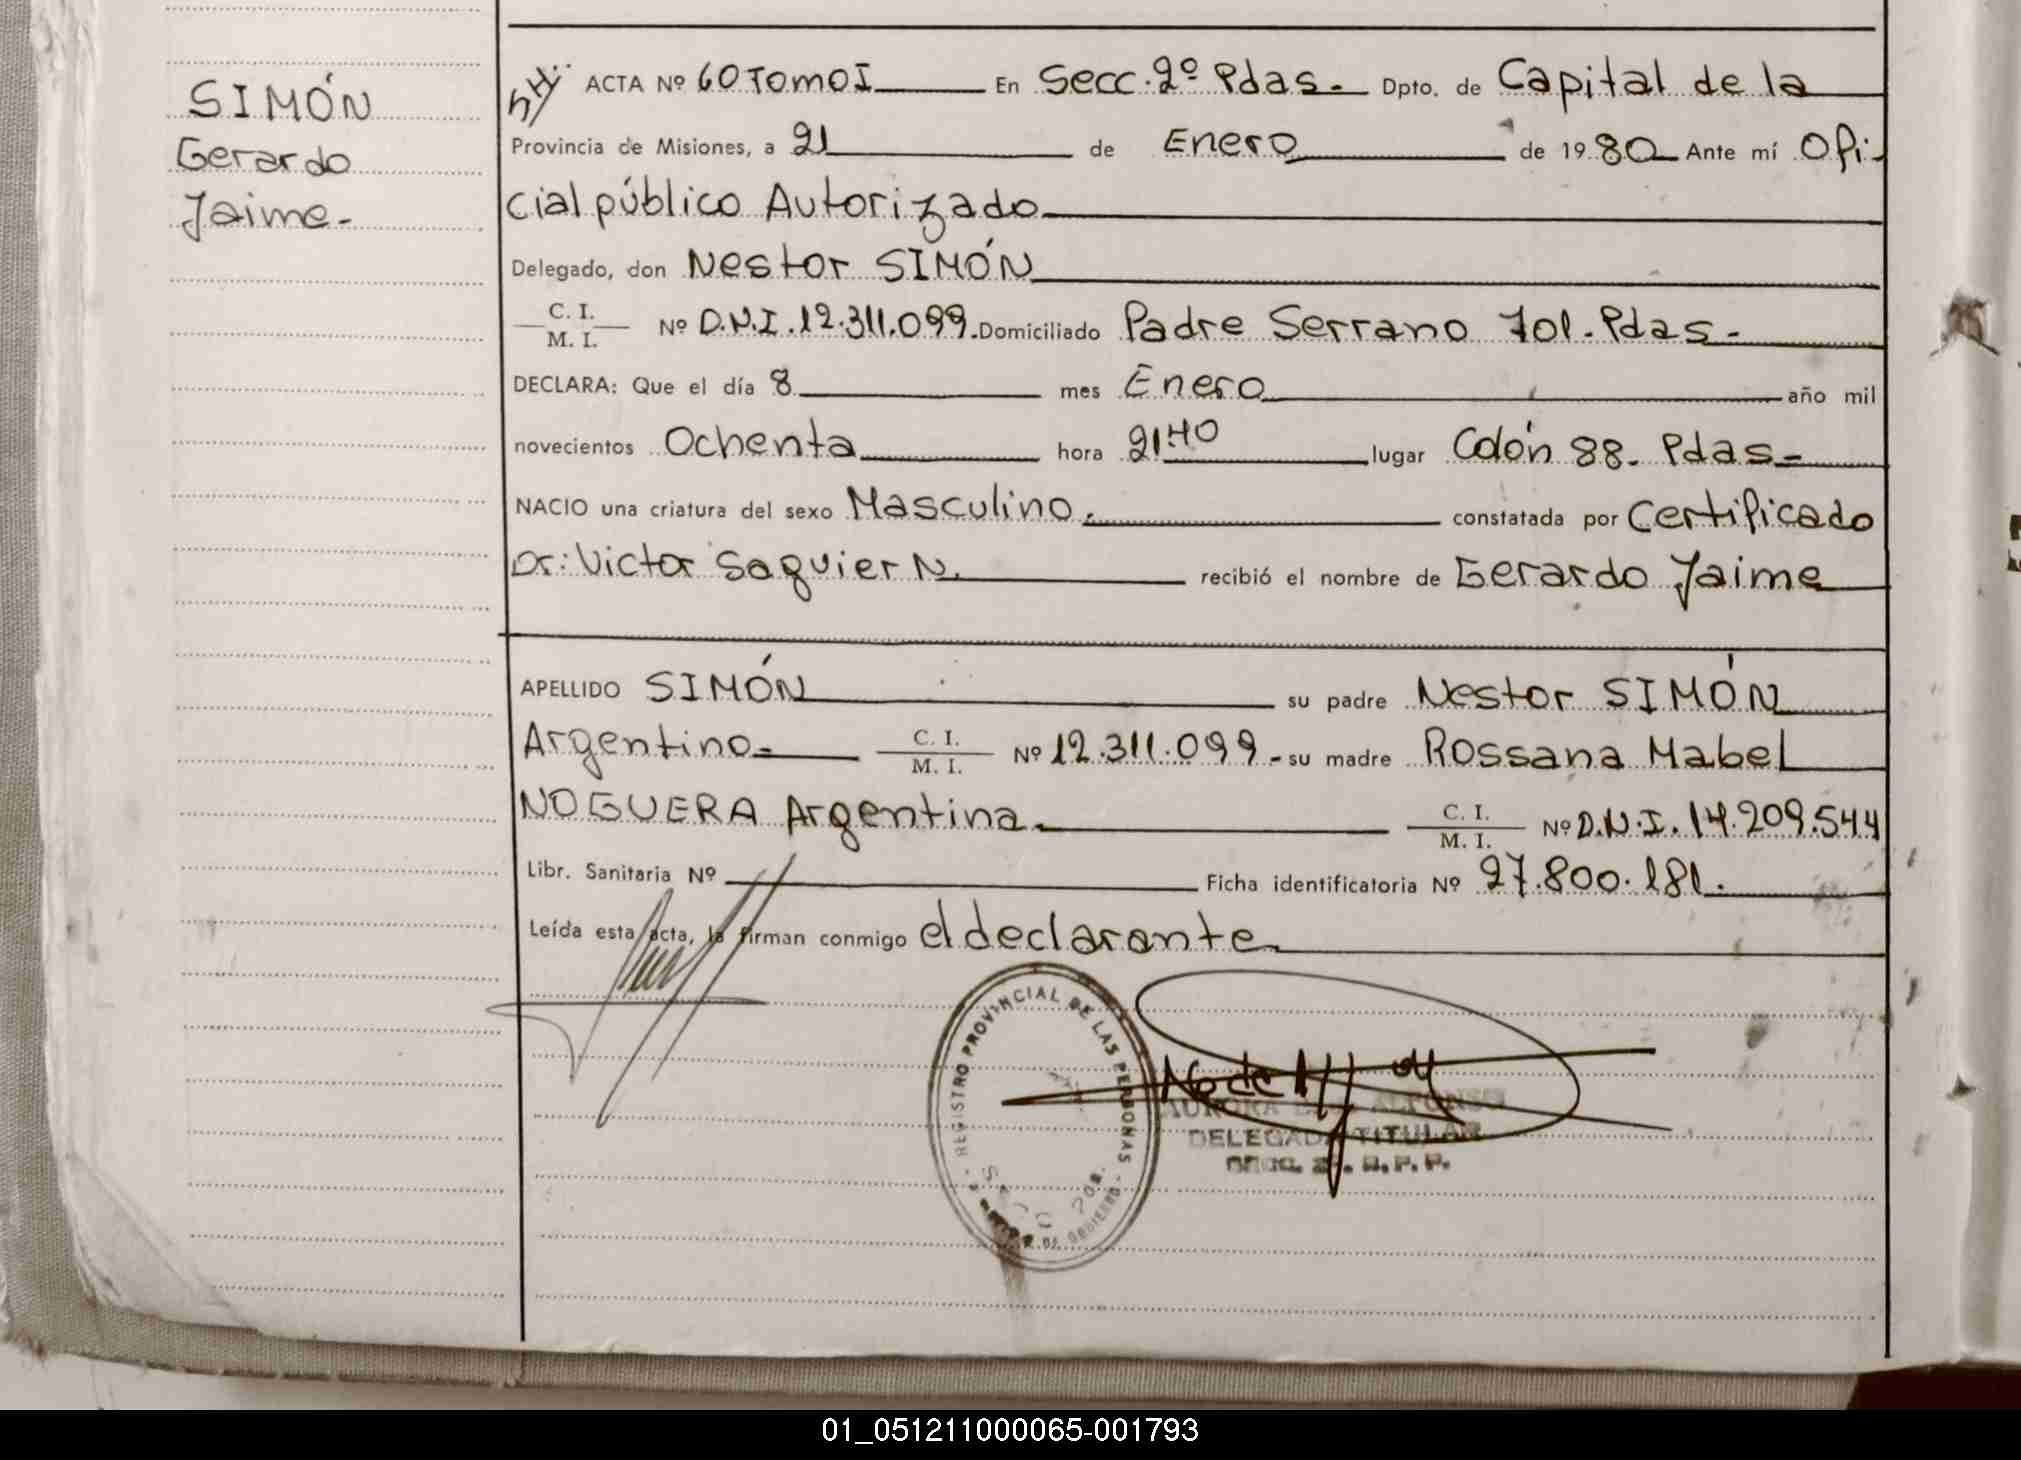 SIMÓN
Gerardo
Jaime-
ACTA Nº 60 Tomo I En Secc. 2º Pdas.- Dpto. de Capital de la
Provincia de Misiones, a 21 de Enero de 1980 Ante mí Ofi-
cial público Autorizado
Delegado, don Nestor SIMÓN
C. I.
M. I. Nº D.N.I. 12.311.099. Domiciliado Padre Serrano 701.- Pdas-
DECLARA: Que el día 8 mes Enero año mil
novecientos Ochenta hora 21:40 lugar Colón 88- Pdas-
NACIO una criatura del sexo Masculino. constatada por Certificado
Dr: Victor Saguier N. recibió el nombre de Gerardo Jaime
APELLIDO SIMÓN su padre Nestor SIMÓN
Argentino- C. I.
M. I. Nº 12.311.099- su madre Rossana Mabel
NOGUERA Argentina. C. I.
M. I. Nº D.N.I. 14.209.544
Libr. Sanitaria Nº Ficha identificatoria Nº 27.800.181.
Leída esta acta, la firman conmigo el declarante
REGISTRO PROVINCIAL DE LAS PERSONAS
AURORA ALFONSO
DELEGADA TITULAR
01_051211000065-001793